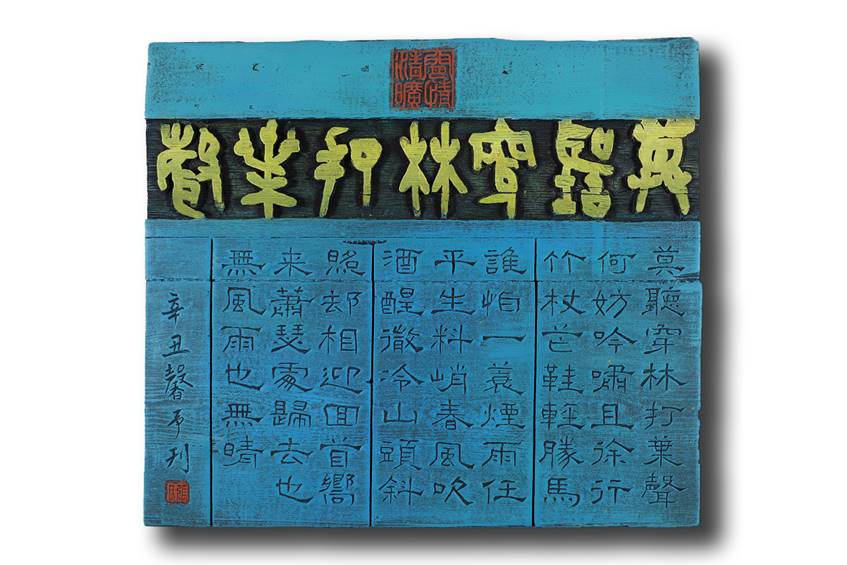 莫聽穿林打葉聲
莫聽穿林打葉聲
何妨吟嘯且徐行
竹杖芒鞋輕勝馬
誰怕一蓑煙雨任
平生料峭春風吹
酒醒微冷山頭斜
照却相迎回首嚮
来蕭瑟處歸去也
無風雨也無晴
辛丑馨予刊